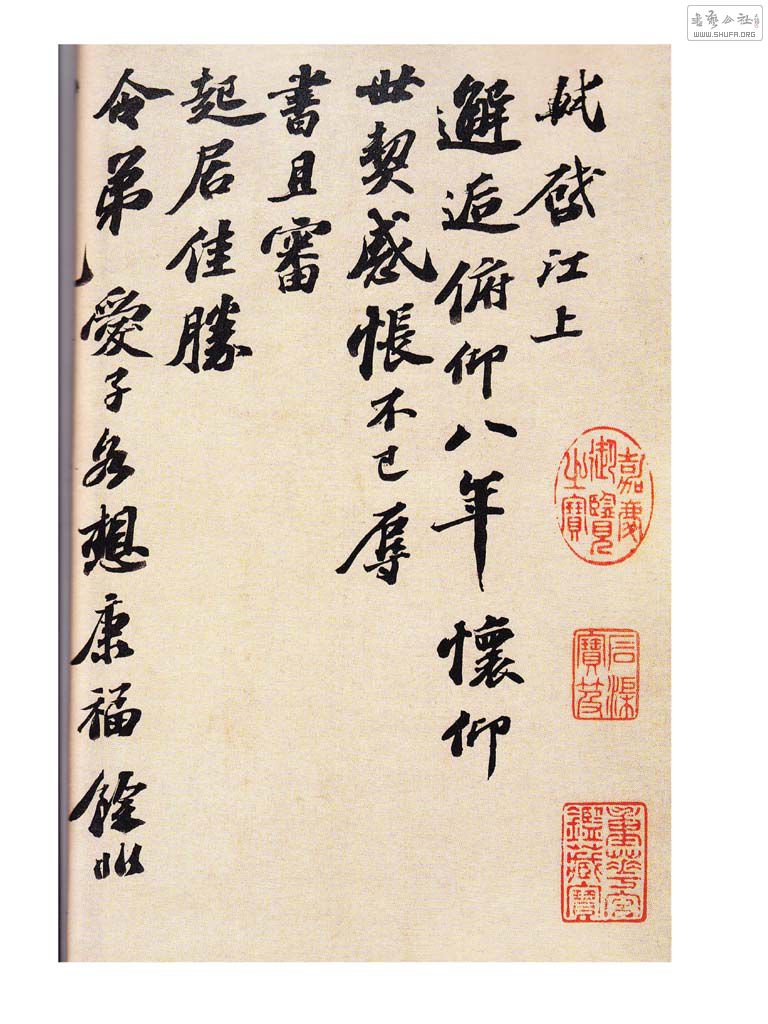 軾啓江上
邂逅俯仰八年懷仰
世契感悵不已辱
書且審
起居佳勝
令弟愛子各想康福餘非
嘉慶御覽之寶
石渠寶笈
重華宮鑑藏寶
書藝公社
WWW.SHUFA.ORG